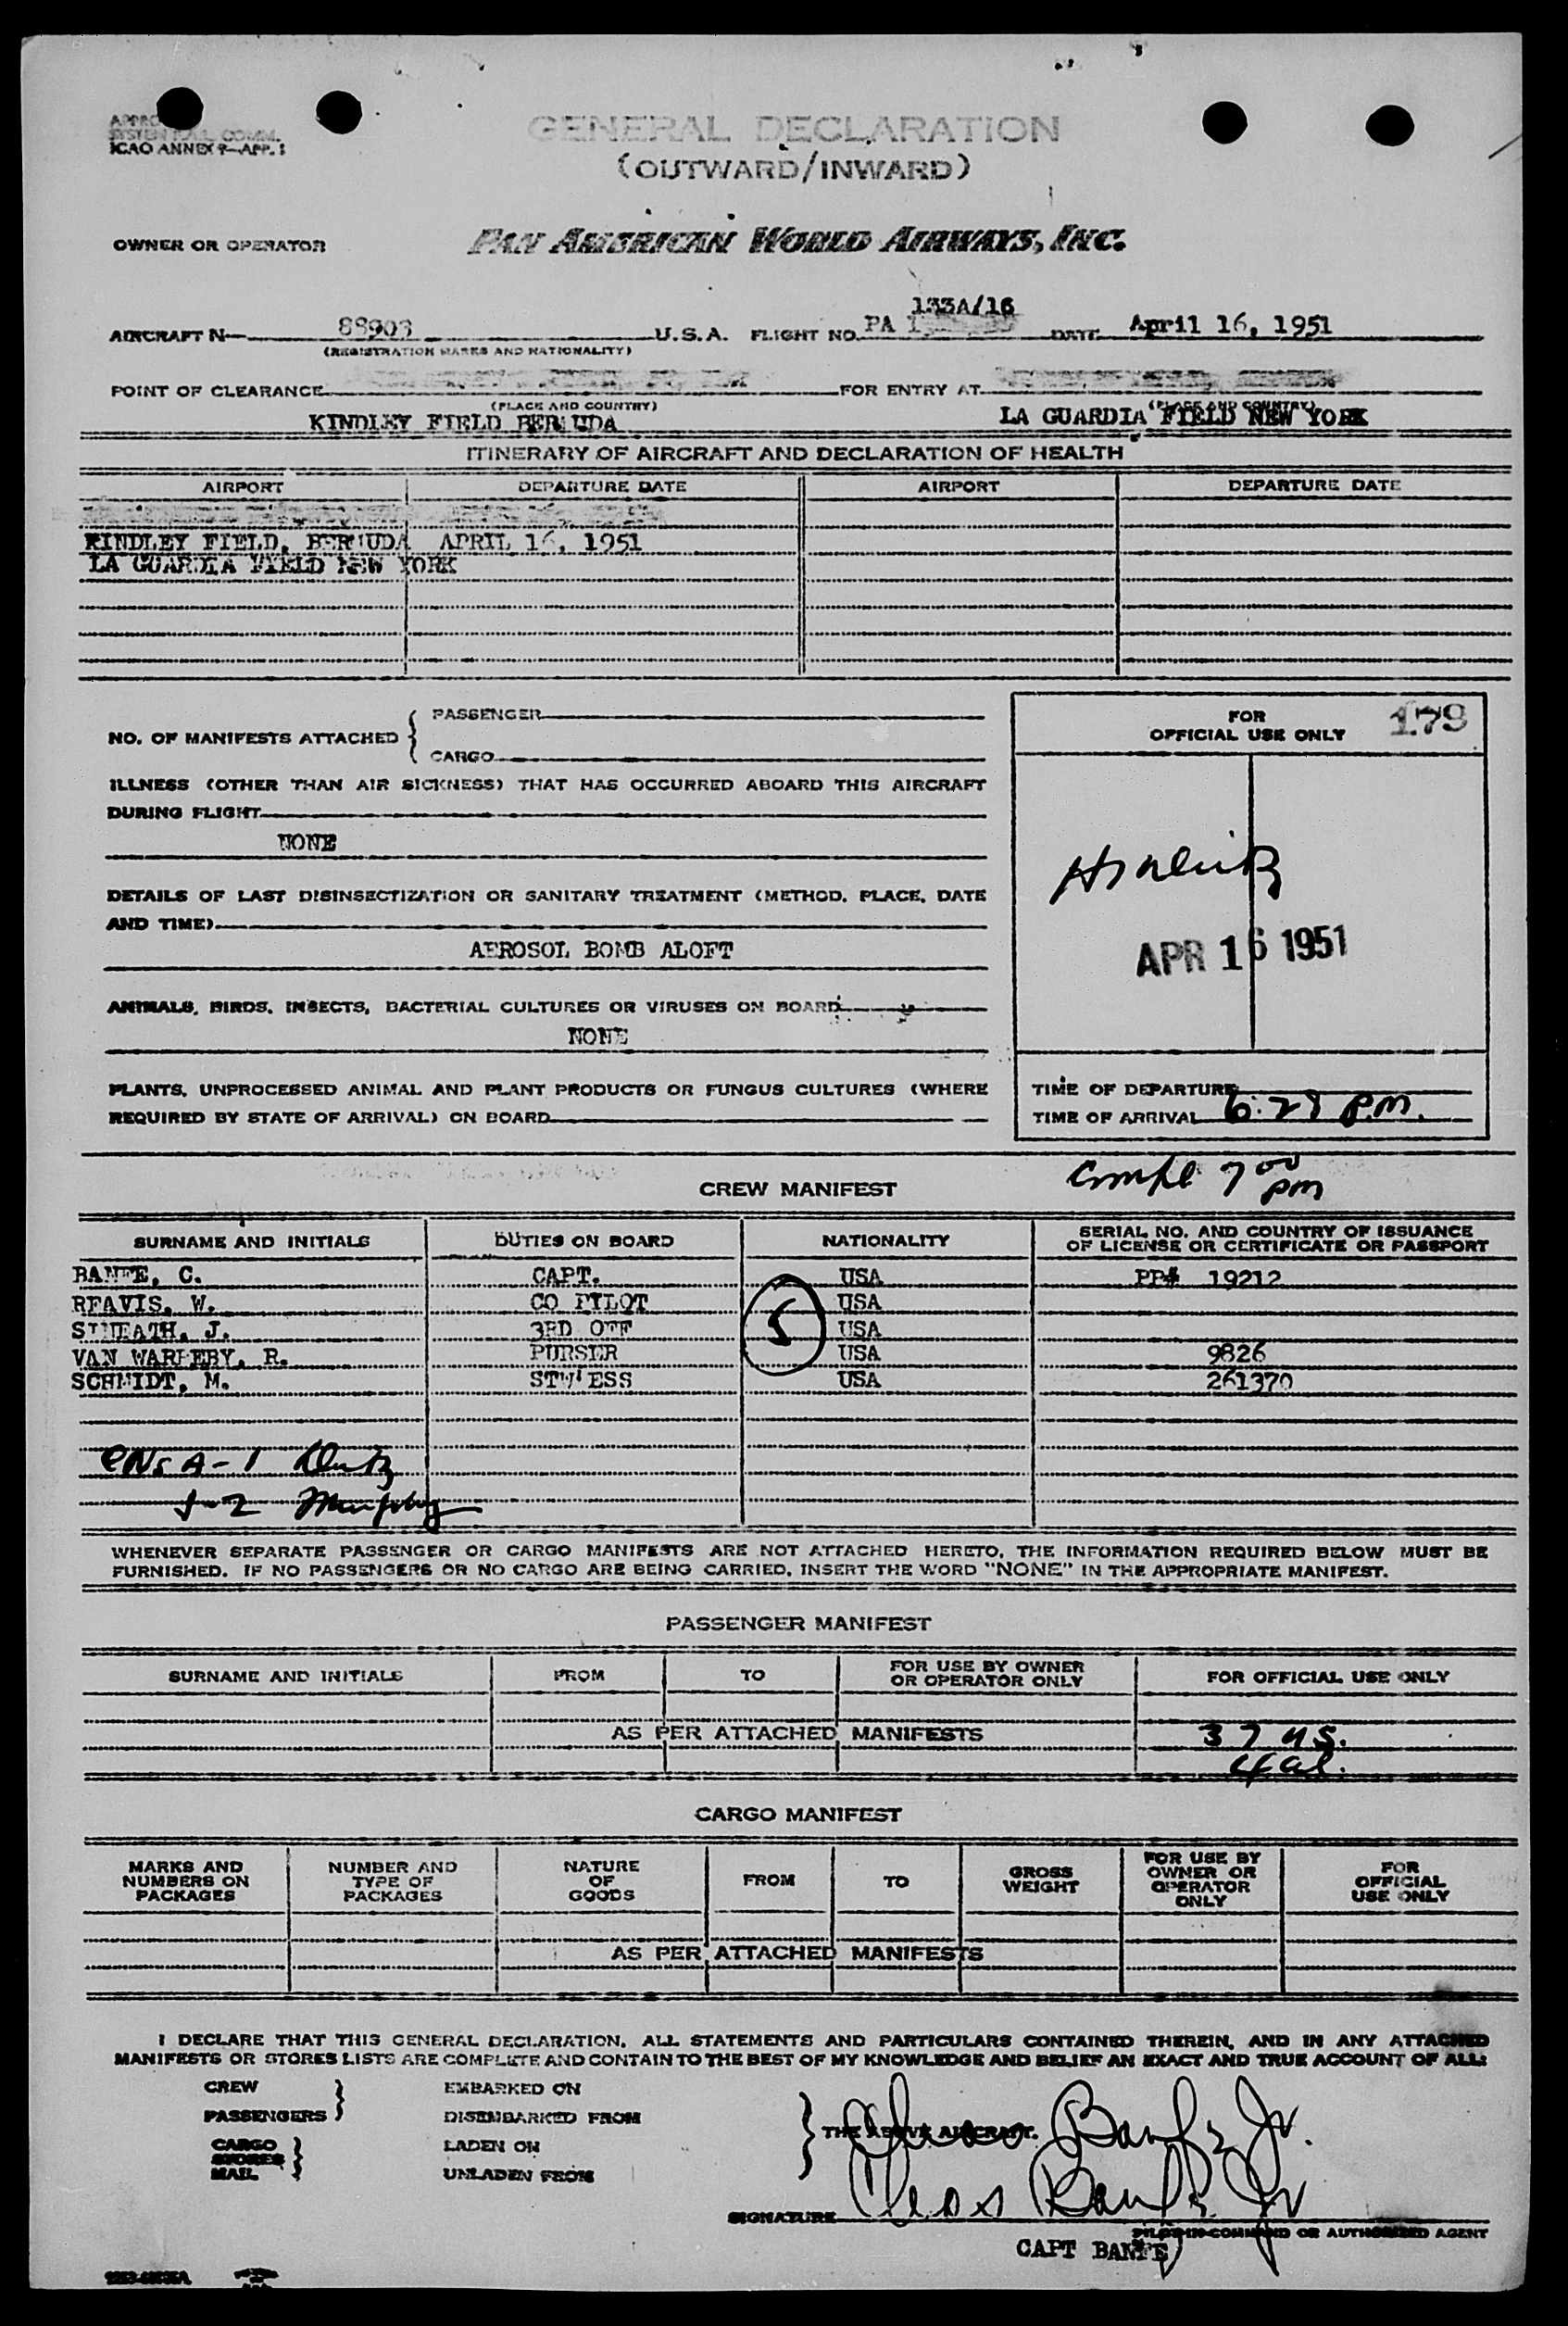 ICAO ANNEX 9—APP. 1
GENERAL DECLARATION
(OUTWARD/INWARD)
OWNER OR OPERATOR PAN AMERICAN WORLD AIRWAYS, INC.
133A/16
AIRCRAFT N— 88903 U.S.A. FLIGHT NO. PA 1 DATE April 16, 1951
(REGISTRATION MARKS AND NATIONALITY)
POINT OF CLEARANCE FOR ENTRY AT
(PLACE AND COUNTRY) (PLACE AND COUNTRY)
KINDLEY FIELD BERMUDA LA GUARDIA FIELD NEW YORK
ITINERARY OF AIRCRAFT AND DECLARATION OF HEALTH
AIRPORT DEPARTURE DATE AIRPORT DEPARTURE DATE
KINDLEY FIELD, BERMUDA APRIL 16, 1951
LA GUARDIA FIELD NEW YORK
NO. OF MANIFESTS ATTACHED { PASSENGER
CARGO
FOR
OFFICIAL USE ONLY 179
ILLNESS (OTHER THAN AIR SICKNESS) THAT HAS OCCURRED ABOARD THIS AIRCRAFT
DURING FLIGHT
NONE
DETAILS OF LAST DISINSECTIZATION OR SANITARY TREATMENT (METHOD, PLACE, DATE
AND TIME)
AEROSOL BOMB ALOFT
APR 16 1951
ANIMALS, BIRDS, INSECTS, BACTERIAL CULTURES OR VIRUSES ON BOARD
NONE
PLANTS, UNPROCESSED ANIMAL AND PLANT PRODUCTS OR FUNGUS CULTURES (WHERE
REQUIRED BY STATE OF ARRIVAL) ON BOARD
TIME OF DEPARTURE
TIME OF ARRIVAL 6:28 P.M.
Compl 7 00 pm
CREW MANIFEST
SURNAME AND INITIALS DUTIES ON BOARD NATIONALITY SERIAL NO. AND COUNTRY OF ISSUANCE
OF LICENSE OR CERTIFICATE OR PASSPORT
BANFE, C. CAPT. USA PP# 19212
REAVIS, W. CO PILOT USA
SINEATH, J. 3RD OFF 5 USA
VAN WARLEBY, R. PURSER USA 9826
SCHMIDT, M. STW'ESS USA 261370
A-1
1-2 Murphy
WHENEVER SEPARATE PASSENGER OR CARGO MANIFESTS ARE NOT ATTACHED HERETO, THE INFORMATION REQUIRED BELOW MUST BE
FURNISHED. IF NO PASSENGERS OR NO CARGO ARE BEING CARRIED, INSERT THE WORD "NONE" IN THE APPROPRIATE MANIFEST.
PASSENGER MANIFEST
SURNAME AND INITIALS FROM TO FOR USE BY OWNER
OR OPERATOR ONLY FOR OFFICIAL USE ONLY
AS PER ATTACHED MANIFESTS 37 US.
4 al.
CARGO MANIFEST
MARKS AND
NUMBERS ON
PACKAGES
NUMBER AND
TYPE OF
PACKAGES
NATURE
OF
GOODS
FROM
TO
GROSS
WEIGHT
FOR USE BY
OWNER OR
OPERATOR
ONLY
FOR
OFFICIAL
USE ONLY
AS PER ATTACHED MANIFESTS
I DECLARE THAT THIS GENERAL DECLARATION, ALL STATEMENTS AND PARTICULARS CONTAINED THEREIN, AND IN ANY ATTACHED
MANIFESTS OR STORES LISTS ARE COMPLETE AND CONTAIN TO THE BEST OF MY KNOWLEDGE AND BELIEF AN EXACT AND TRUE ACCOUNT OF ALL:
CREW EMBARKED ON
PASSENGERS DISEMBARKED FROM THE ABOVE AIRCRAFT.
CARGO LADEN ON
STORES
MAIL UNLADEN FROM
Chas Banfe Jr.
Chas Banfe Jr
SIGNATURE
PILOT-IN-COMMAND OR AUTHORIZED AGENT
CAPT BANFE